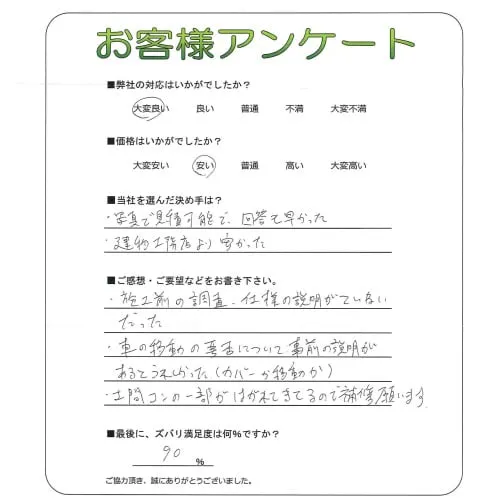 お客様アンケート
■弊社の対応はいかがでしたか？
大変良い 良い 普通 不満 大変不満
■価格はいかがでしたか？
大変安い 安い 普通 高い 大変高い
■当社を選んだ決め手は？
・写真で見積可能で、回答も早かった
・建物工務店より安かった
■ご感想・ご要望などをお書き下さい。
・施工前の調査、仕様の説明がていねい
だった
・車の移動の要否について事前の説明が
あるとうれしかった（カバーか移動か）
・土間コンの一部がはがれてきてるので補修願います。
■最後に、ズバリ満足度は何％ですか？
90 %
ご協力頂き、誠にありがとうございました。